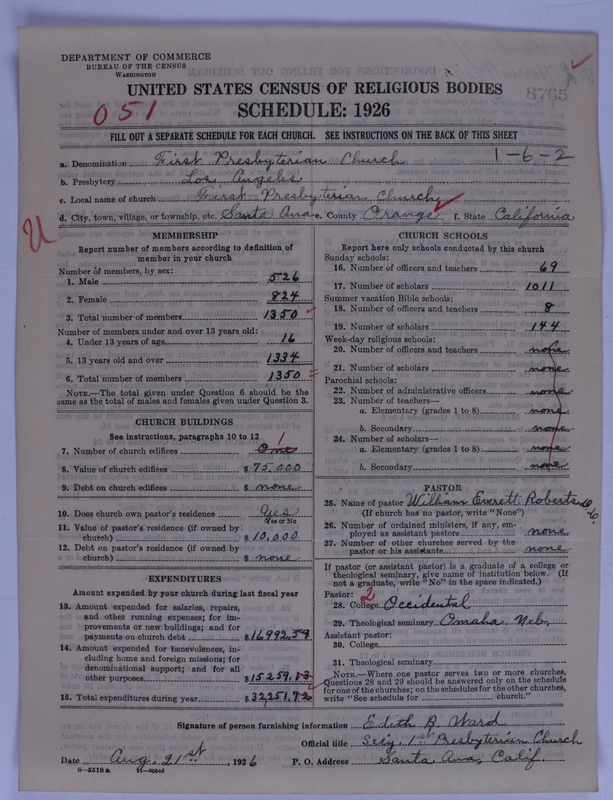 DEPARTMENT OF COMMERCE
BUREAU OF THE CENSUS
WASHINGTON
UNITED STATES CENSUS OF RELIGIOUS BODIES
SCHEDULE: 1926
051
8765
FILL OUT A SEPARATE SCHEDULE FOR EACH CHURCH. SEE INSTRUCTIONS ON THE BACK OF THIS SHEET
a. Denomination First Presbyterian Church 1-6-2
b. Presbytery Los Angeles
c. Local name of church First Presbyterian Church
d. City, town, village, or township, etc. Santa Ana e. County Orange f. State California
U
MEMBERSHIP
Report number of members according to definition of
member in your church
Number of members, by sex:
1. Male 526
2. Female 824
3. Total number of members 1350
Number of members under and over 13 years old:
4. Under 13 years of age 16
5. 13 years old and over 1334
6. Total number of members 1350
NOTE.—The total given under Question 6 should be the
same as the total of males and females given under Question 3.
CHURCH BUILDINGS
See instructions, paragraphs 10 to 12
7. Number of church edifices One 1
8. Value of church edifices $ 75,000
9. Debt on church edifices $ none
10. Does church own pastor's residence? Yes
Yes or No
11. Value of pastor's residence (if owned by
church) $ 10,000
12. Debt on pastor's residence (if owned by
church) $ none
EXPENDITURES
Amount expended by your church during last fiscal year
13. Amount expended for salaries, repairs,
and other running expenses; for im-
provements or new buildings; and for
payments on church debt $ 16992.59
14. Amount expended for benevolences, in-
cluding home and foreign missions; for
denominational support; and for all
other purposes $ 15259.13
15. Total expenditures during year $ 32,251.72
CHURCH SCHOOLS
Report here only schools conducted by this church
Sunday schools:
16. Number of officers and teachers 69
17. Number of scholars 1011
Summer vacation Bible schools:
18. Number of officers and teachers 8
19. Number of scholars 144
Week-day religious schools:
20. Number of officers and teachers none
21. Number of scholars none
Parochial schools:
22. Number of administrative officers none
23. Number of teachers—
a. Elementary (grades 1 to 8) none
b. Secondary none
24. Number of scholars—
a. Elementary (grades 1 to 8) none
b. Secondary none
PASTOR
25. Name of pastor William Everett Roberts
(If church has no pastor, write "None")
26. Number of ordained ministers, if any, em-
ployed as assistant pastors none
27. Number of other churches served by the
pastor or his assistants none
If pastor (or assistant pastor) is a graduate of a college or
theological seminary, give name of institution below. (If
not a graduate, write "No" in the space indicated.)
Pastor: 2
28. College Occidental
29. Theological seminary Omaha, Neb.
Assistant pastor:
30. College
31. Theological seminary
NOTE.—Where one pastor serves two or more churches,
Questions 28 and 29 should be answered only on the schedule
for one of the churches; on the schedules for the other churches,
write "See schedule for church."
Signature of person furnishing information Edith R. Ward
Official title Sec'y, 1st Presbyterian Church
Date Aug. 21st, 1926 P. O. Address Santa Ana, Calif.
8—5518a 11—9054d